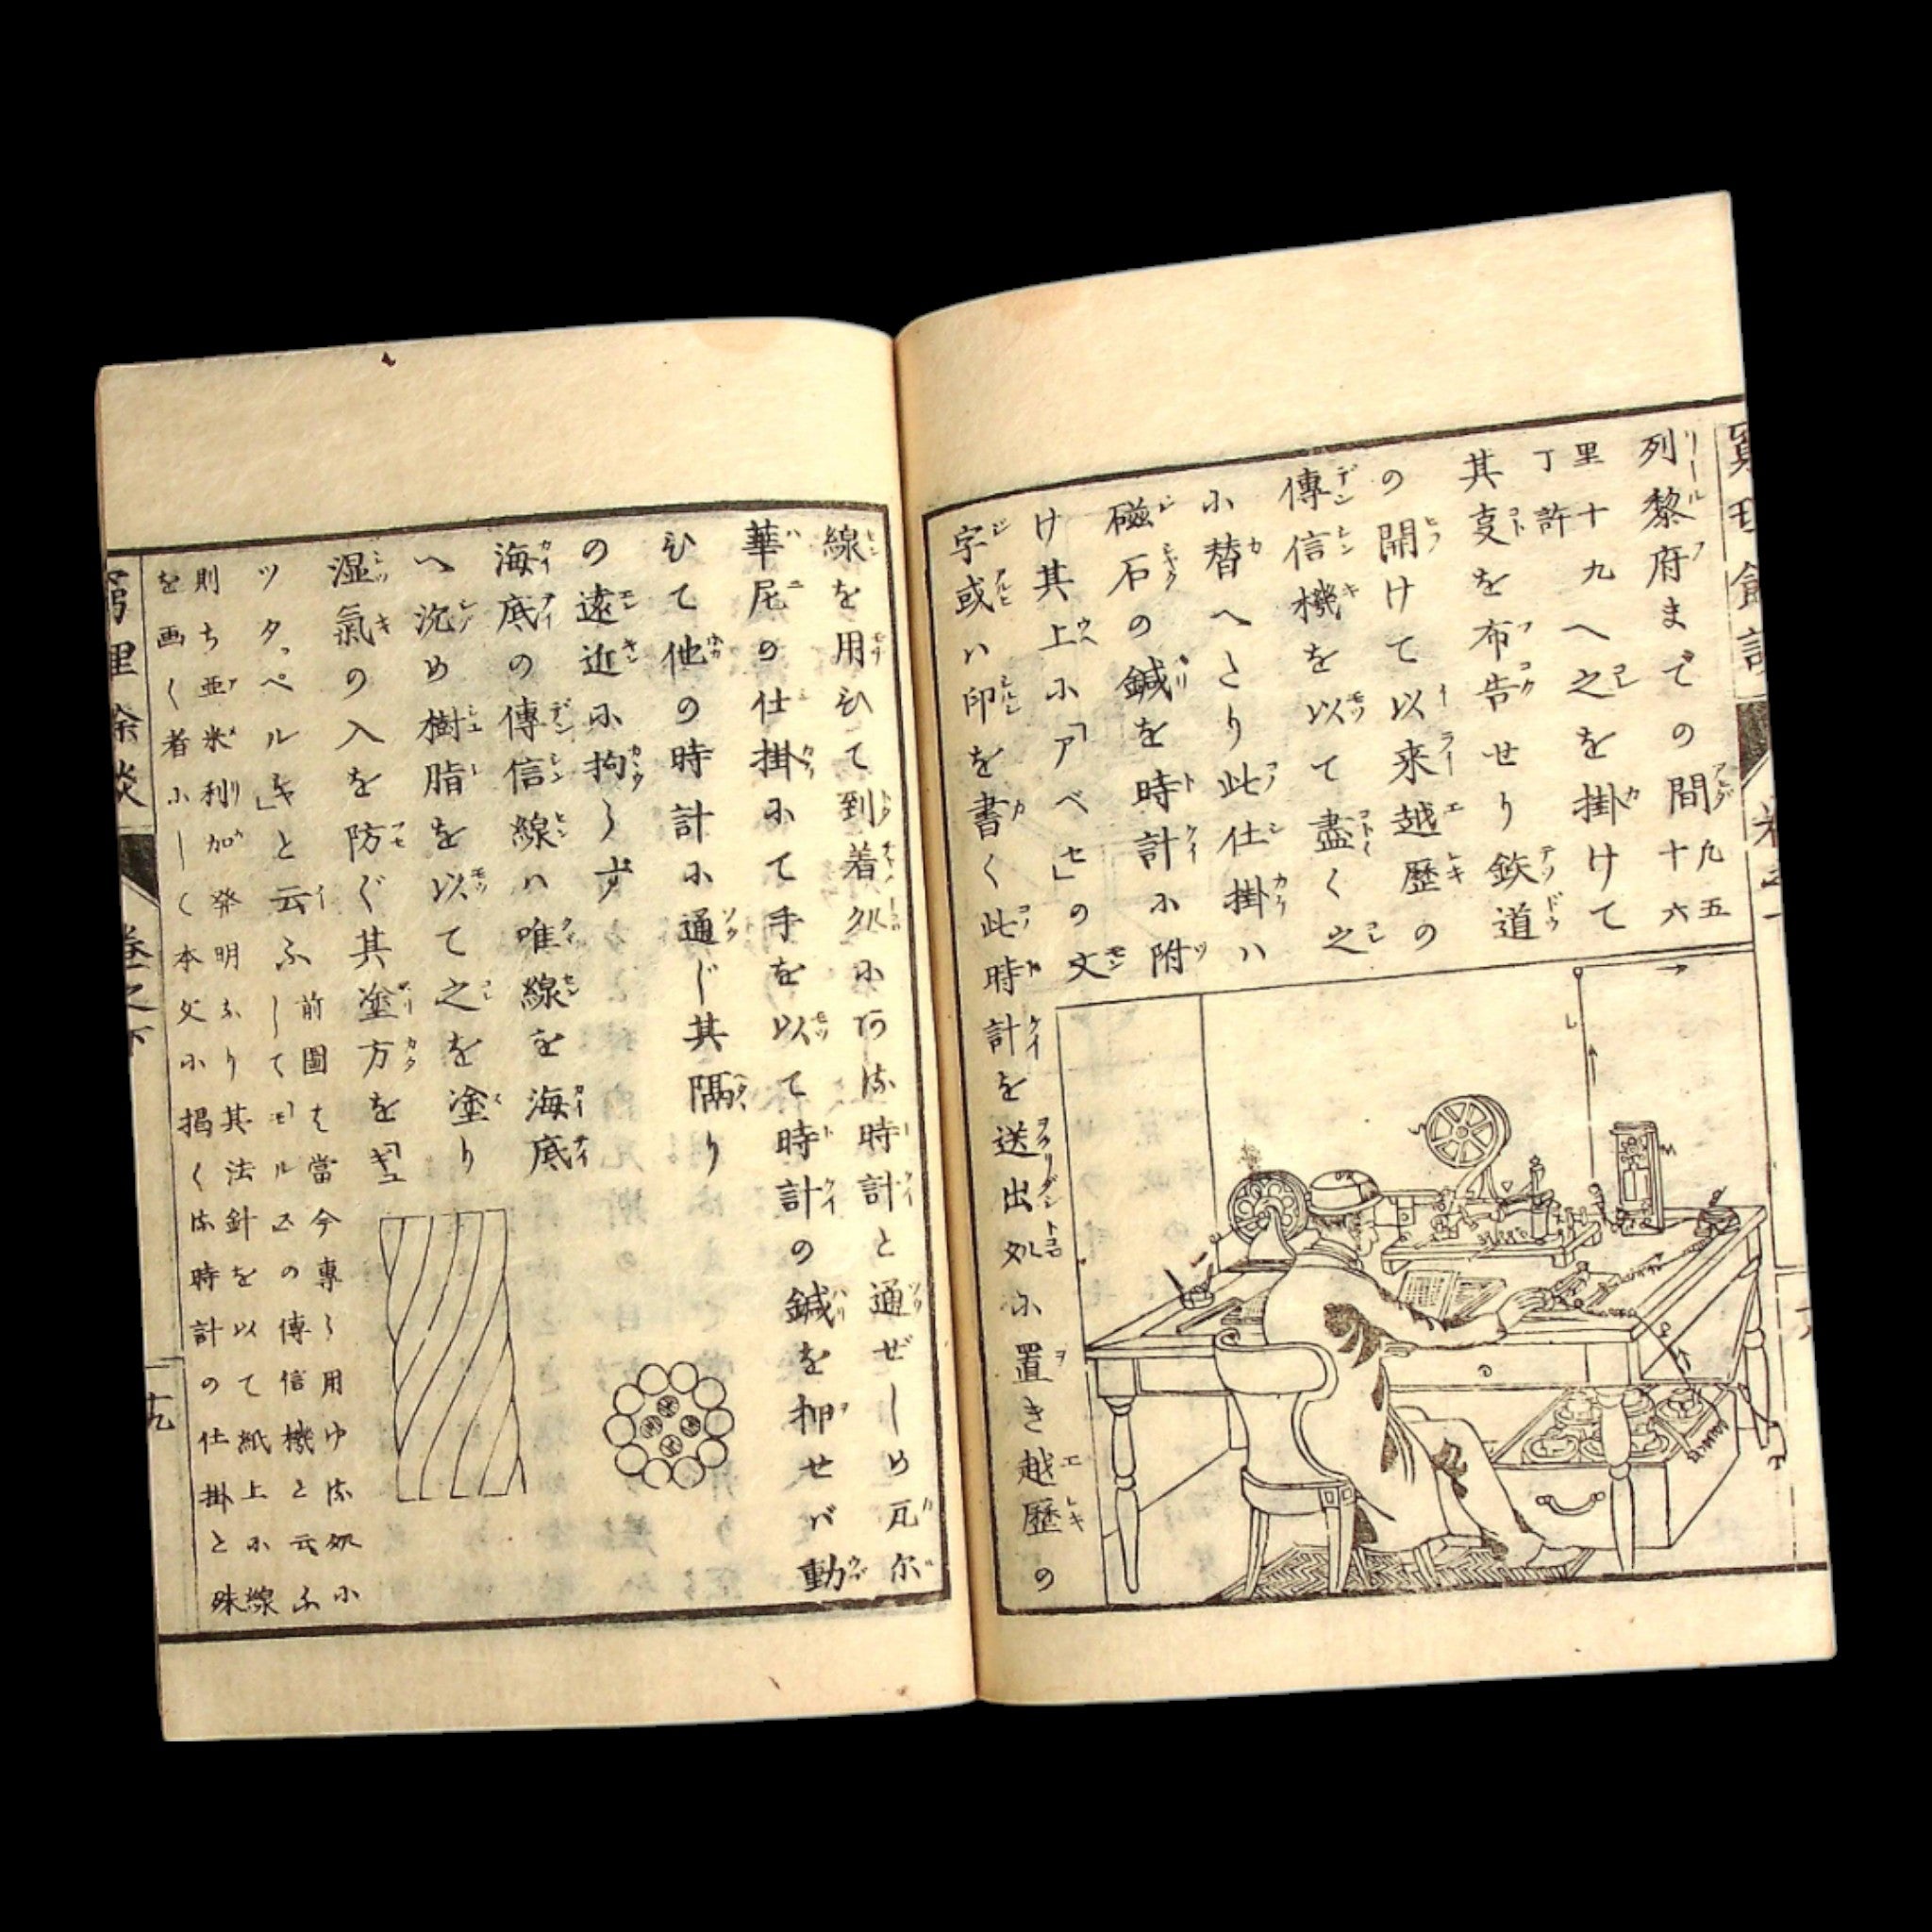 列黎府までの間凡五十六
里十九丁許へ之を掛けて
其叓を布告せり鉄道
の開けて以来越歴の
傳信機を以て盡く之
小替へたり此仕掛ハ
磁石の鍼を時計小附
け其上小「アベセ」の文
字或ハ印を書く此時計を送出処小置き越歴の
線を用ひて到着処小阿る時計と通ぜしめ瓦尓
華尼の仕掛小て手を以て時計の鍼を押せバ動
ひて他の時計小通じ其隔り
の遠近小拘らず
海底の傳信線ハ唯線を海底
へ沈め樹脂を以て之を塗り
湿氣の入を防ぐ其塗方を「ギュ
ッタッペルキ」と云ふ
前圖は當今專ら用ゆる処小
して「モルス」の傳信機と云ふ
則ち亜米利加発明なり其法針を以て紙上小線
を画く者小しく本文小掲くる時計の仕掛と殊
窮理餘談
巻之下
十九